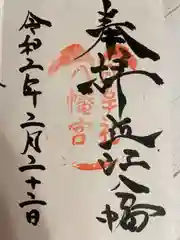 奉拝
近江八幡
八幡宮
令和二年二月二十三日